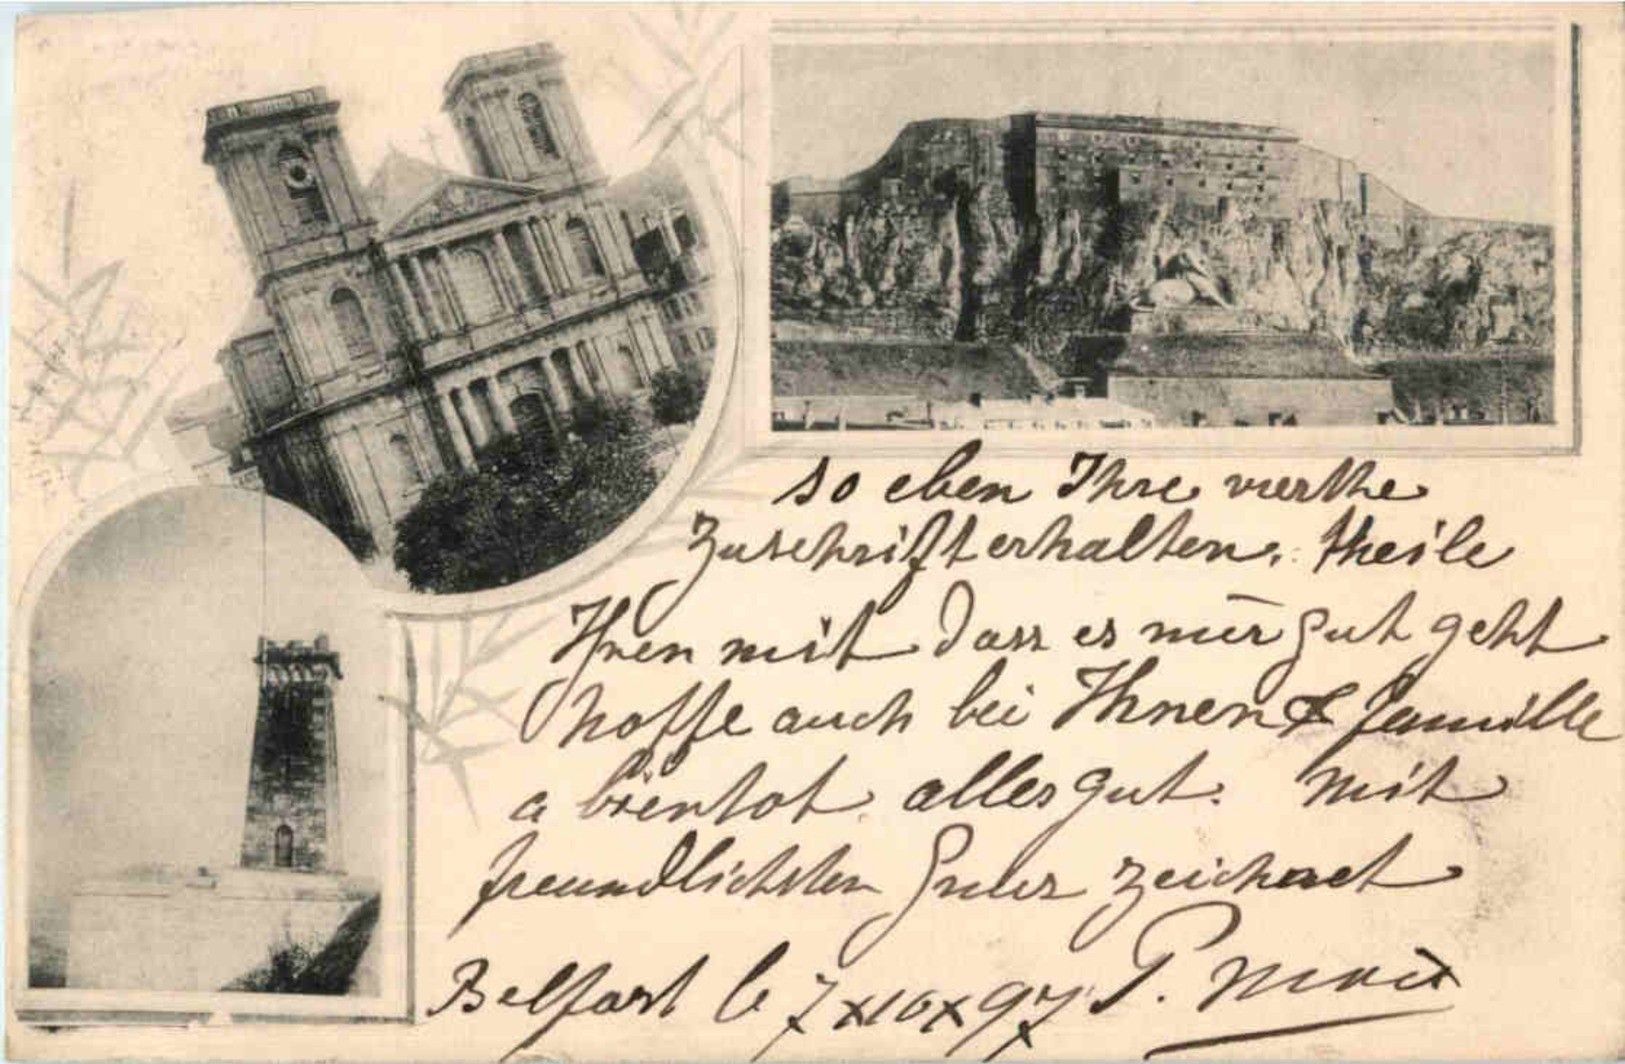 so eben Ihre vierthe
Zuschrift erhalten. theile
Ihnen mit dass es mir gut geht
hoffe auch bei Ihnen & famille
a bientot alles gut. Mit
freundlichsten Grus zeichnet
Belfort le 7 x 10 x 97 P.